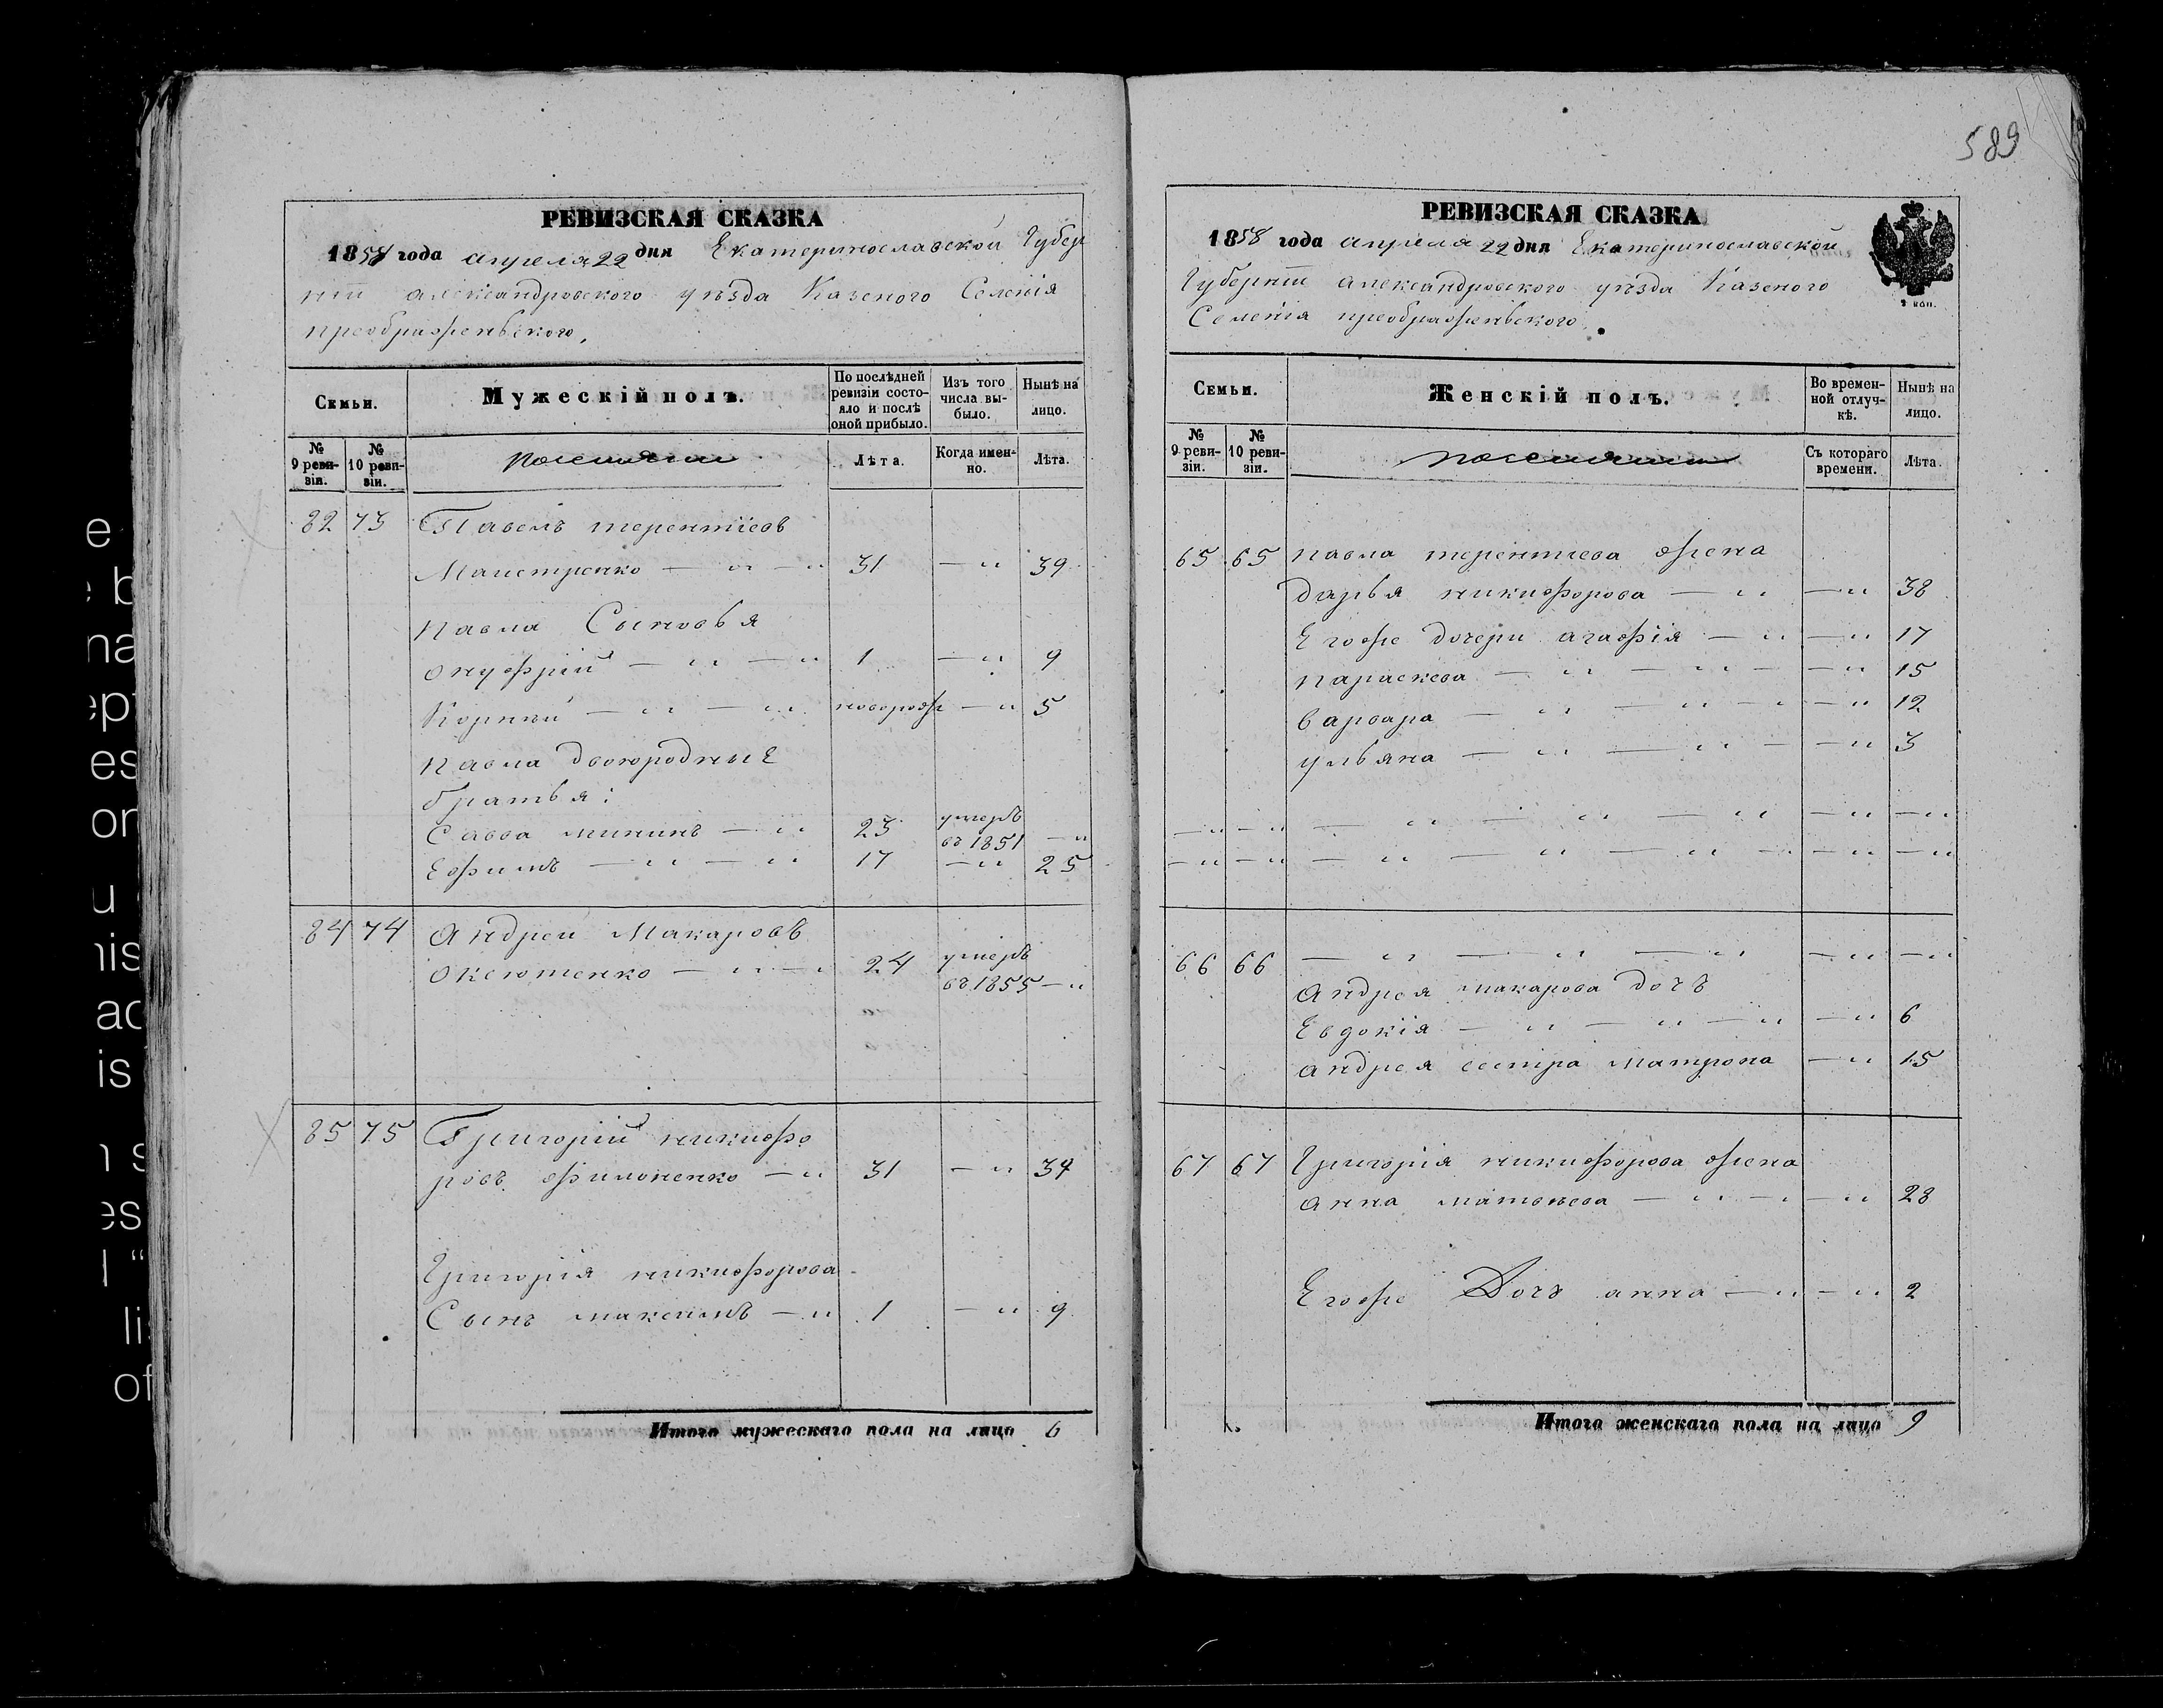 589
РЕВИЗСКАЯ СКАЗКА
1858 года апреля 22 дня Екатеринославской Губер
нiи александровского уѣзда Казеного Селенiя
преображеньского.
Семьи.
Мужескiй полъ.
По послѣдней ревизiи состояло и послѣ оной прибыло.
Изъ того числа выбыло.
Нынѣ на лицо.
№ 9 ревизiи.
№ 10 ревизiи.
поселяни
Лѣта.
Когда именно.
Лѣта.
82 73 Павелъ терентiевъ
Маистренко — " — " 31 — " 39
павла Сыновья
онуфрiй — " — " 1 — " 9
Корнѣй — " — " новорож — " 5
павла двоюродные
братья:
Савва мининъ — " 23 умеръ въ 1851 — "
Ефимъ — " — " 17 — " 25
84 74 Андрей Макаровъ
Оксютенко — " — " 24 умеръ въ 1855 — "
85 75 Григорiй никифо
ровъ филоненко — " 31 — " 39
Григорiя никифорова
Сынъ максимъ — " 1 — " 9
Итого мужескаго пола на лицо 6
РЕВИЗСКАЯ СКАЗКА
1858 года апреля 22 дня Екатеринославской
Губернiи александровского уѣзда Казеного
Селенiя преображеньского.
2 коп.
Семьи.
Женскiй полъ.
Во временной отлучкѣ.
Нынѣ на лицо.
№ 9 ревизiи.
№ 10 ревизiи.
поселянки
Съ котораго времени.
Лѣта.
65 65 павла терентиева жена
дарья никифорова — " — " 38
Егоже дочери агафiя — " — " 17
параскева — " — " — — " 15
варвара — " — " — " — " 12
ульяна — " — " — — " 3
— " — " — " — " — " — " — "
— " — " — " — " — " — — " — "
66 66 — " — " — " — " — "
Андрея макарова дочъ
Евдокiя — " — " — " — " 6
андрея сестра матрона — " 15
67 67 Григорiя никифорова жена
анна матвѣева — " — " — " 28
Егоже Дочъ анна — " — " 2
Итого женскаго пола на лицо 9